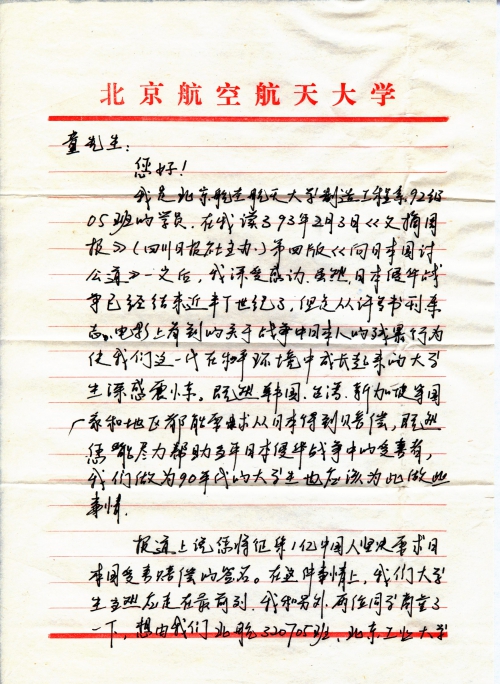 北京航空航天大学
童先生：
您好！
我是北京航空航天大学制造工程系92级
05班的学员，在我读了93年2月3日《文摘周
报》（四川日报社主办）第四版《向日本国讨
公道》一文后，我深受感动。虽然，日本侵华战
争已经结束近半个世纪了，但是从许多书刊杂
志、电影上看到的关于战争中日本人的残暴行为
使我们这一代在和平环境中成长起来的大学
生深感震惊。既然韩国、台湾、新加坡等国
家和地区都能要求从日本得到赔偿，既然
您能尽力帮助当年日本侵华战争中的受害者，
我们做为90年代的大学生也应该为此做些
事情.
报道上说您将征集1亿中国人坚决要求日
本国受害赔偿的签名。在这件事情上，我们大学
生当然应走在最前列，我和另外两位同学商量了
一下，想由我们北航320705班、北京工业大学